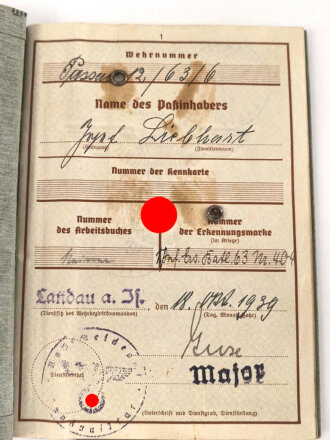 1
Wehrnummer
Passau 12/63/6
Name des Paßinhabers
Josef Liebhart
(Vorname) (Familienname)
Nummer der Kennkarte
Nummer des Arbeitsbuches
Nummer der Erkennungsmarke
(im Kriege)
Inf. Ers. Batl. 63 Nr. 404
Landau a. Is., den 18. 1939
(Dienstsitz des Wehrbezirkskommandos) (Tag, Monat, Jahr)
Major
(Unterschrift und Dienstgrad, Dienststellung)